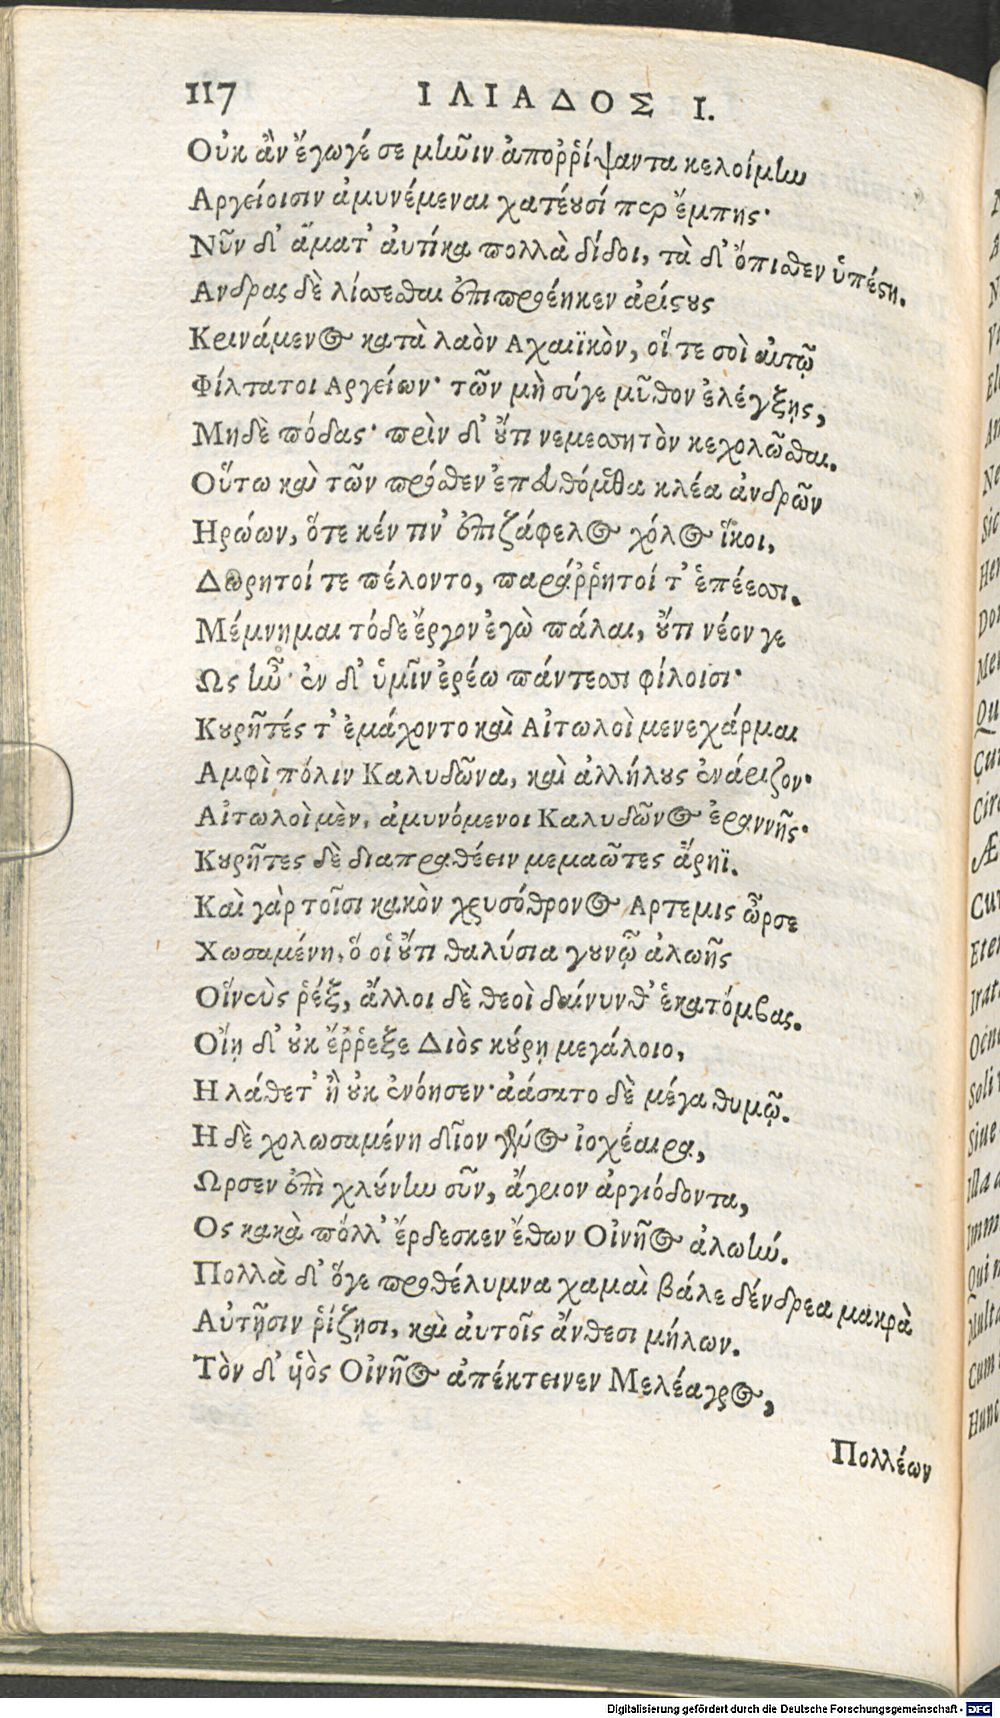 117 ΙΛΙΑΔΟΣ Ι.
Οὐκ ἂν ἔγωγέ σε μῆνιν ἀποῤῥίψαντα κελοίμην
Αργείοισιν ἀμυνέμεναι χατέουσί περ ἔμπης·
Νῦν δ' ἅματ' ἀυτίκα πολλὰ δίδοι, τὰ δ' ὄπισθεν ὑπέστη.
Ανδρας δὲ λίσσεσθαι ἐπιπροέηκεν ἀρίστους
Κρινάμενος κατὰ λαὸν Αχαιϊκὸν, οἵ τε σοὶ αυτῷ
Φίλτατοι Αργείων· τῶν μὴ σύγε μῦθον ἐλέγξῃς,
Μηδὲ πόδας· πρὶν δ' οὔτι νεμεσσητὸν κεχολῶσθαι.
Οὕτω καὶ τῶν πρόσθεν ἐπευθόμεθα κλέα ἀνδρῶν
Ηρώων, ὅτε κέν τιν' ἐπιζάφελος χόλος ἵκοι,
Δωρητοί τε πέλοντο, παράῤῥητοί τ' ἐπέεσσι.
Μέμνημαι τόδε ἔργον ἐγὼ πάλαι, οὔτι νέον γε
Ως ἦν· ἐν δ' ὑμῖν ἐρέω πάντεσσι φίλοισι·
Κουρῆτές τ' ἐμάχοντο καὶ Αἰτωλοὶ μενεχάρμαι
Αμφὶ πόλιν Καλυδῶνα, καὶ ἀλλήλους ἐνάριζον·
Αἰτωλοὶ μὲν, ἀμυνόμενοι Καλυδῶνος ἐραννῆς·
Κουρῆτες δὲ διαπραθέειν μεμαῶτες ἄρηϊ.
Καὶ γὰρ τοῖσι κακὸν χρυσόθρονος Αρτεμις ὦρσε
Χωσαμένη, ὅ οἱ οὔτι θαλύσια γουνῷ ἀλωῆς
Οἵνεὺς ῥέξ, ἄλλοι δὲ θεοὶ δαίνυνθ' ἑκατόμβας.
Οἴῃ δ' οὐκ ἔῤῥεξε Διὸς κούρῃ μεγάλοιο,
Η λάθετ' ἢ οὐκ ἐνόησεν· ἀάσατο δὲ μέγα θυμῷ.
Η δὲ χολωσαμένη δῖον γένος ἰοχέαιρα,
Ωρσεν ἐπὶ χλούνην σῦν, ἄγριον ἀργιόδοντα,
Ος κακὰ πόλλ' ἔρδεσκεν ἔθων Οἰνῆος ἀλωήν.
Πολλὰ δ' ὅγε προθέλυμνα χαμαὶ βάλε δένδρεα μακρὰ
Αὐτῇσιν ῥίζῃσι, καὶ αυτοῖς ἄνθεσι μήλων.
Τὸν δ' υἱὸς Οἰνῆος ἀπέκτεινεν Μελέαγρος,
Πολλέων
Digitalisierung gefördert durch die Deutsche Forschungsgemeinschaft - DFG